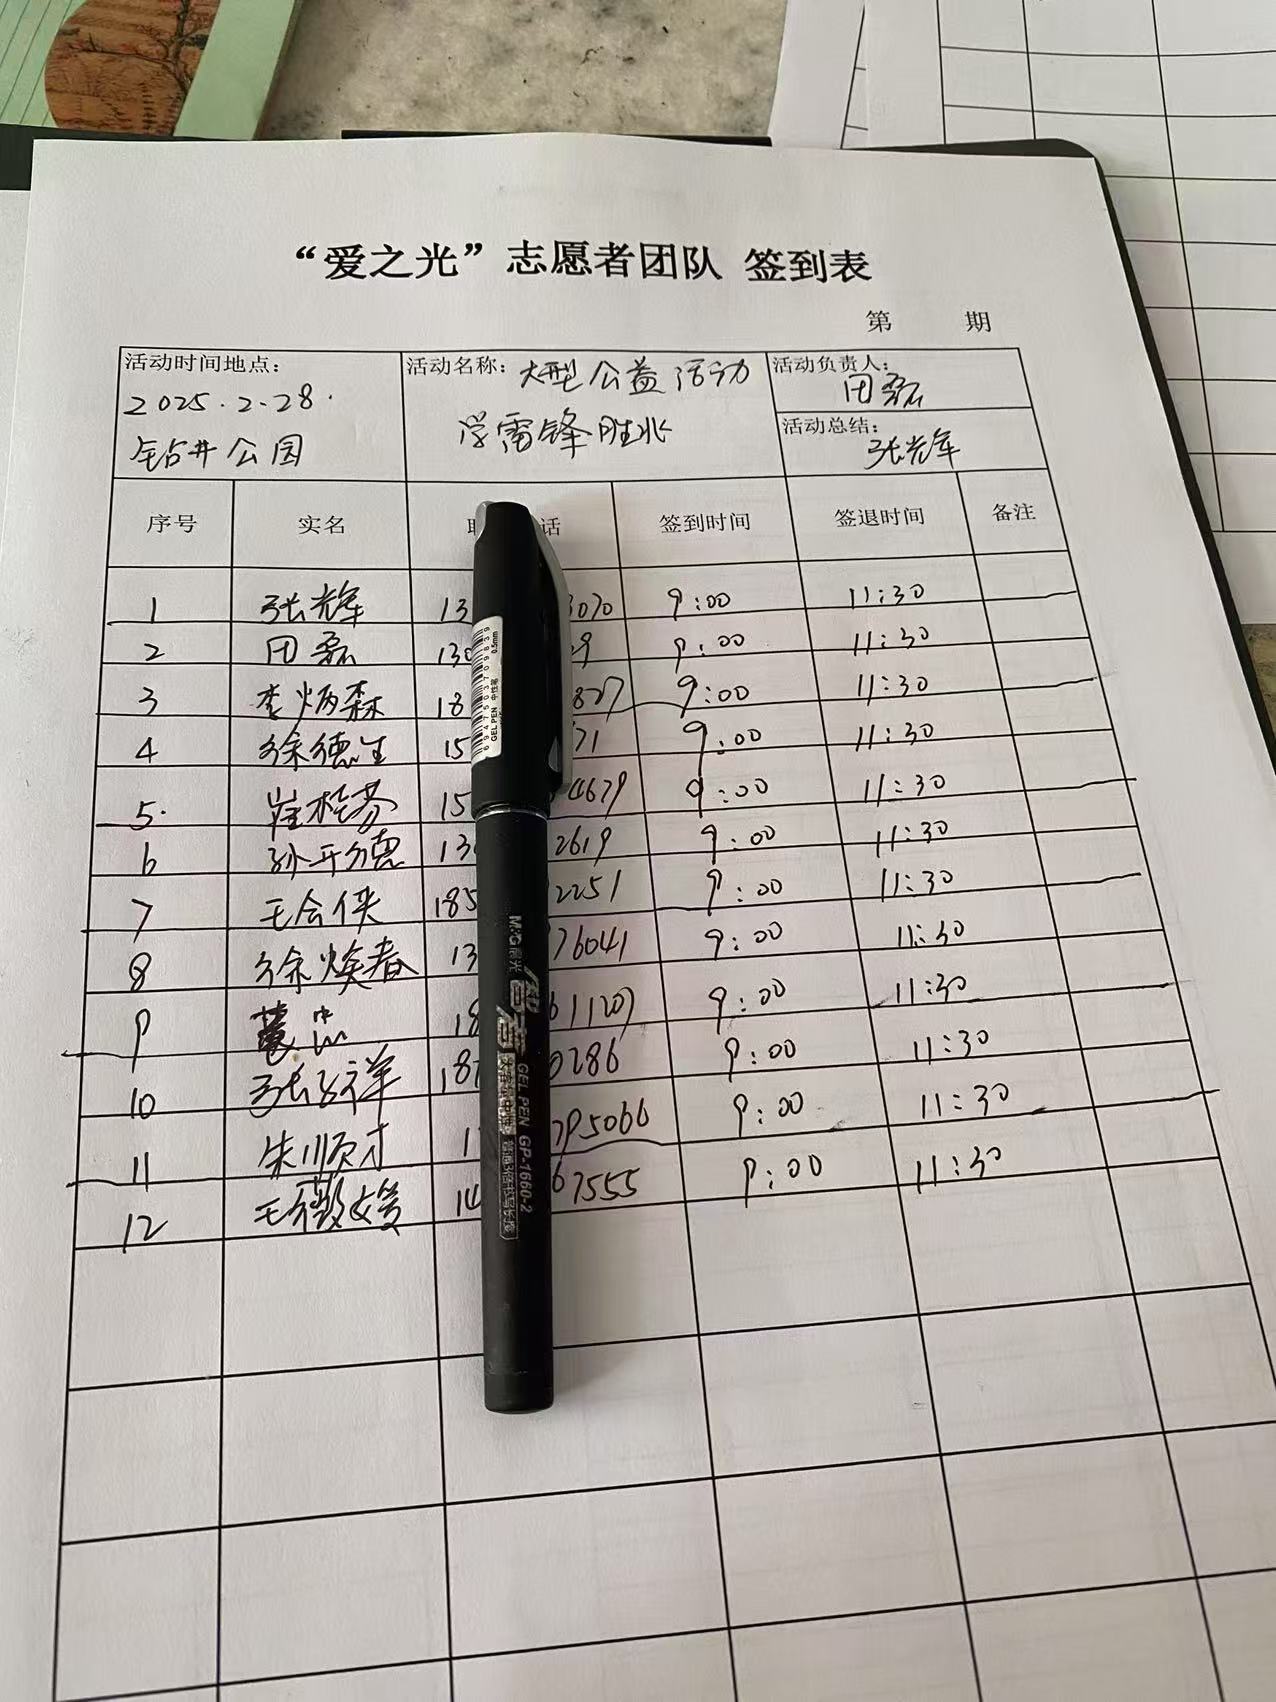 “爱之光”志愿者团队 签到表
第 期
活动时间地点： 2025.2.28. 钻井公园
活动名称：大型公益活动 学雷锋胜北
活动负责人： 田磊
活动总结： 张光辉
序号 实名 话 签到时间 签退时间 备注
1 张光辉 13 3070 9:00 11:30
2 田磊 130 29 9:00 11:30
3 李炳森 18 827 9:00 11:30
4 徐德生 15 71 9:00 11:30
5. 崔桂芬 15 4679 9:00 11:30
6 孙开德 13 2619 9:00 11:30
7 王会侠 185 2251 9:00 11:30
8 徐焕春 13 76041 9:00 11:30
9 18 61120 9:00 11:30
10 张子祥 187 0286 9:00 11:30
11 朱顺才 1 795066 9:00 11:30
12 王薇媛 14 67555 9:00 11:30
6947503709839
GEL PEN 中性笔 0.5mm
M&G晨光
智者
GEL PEN GP-1660-2